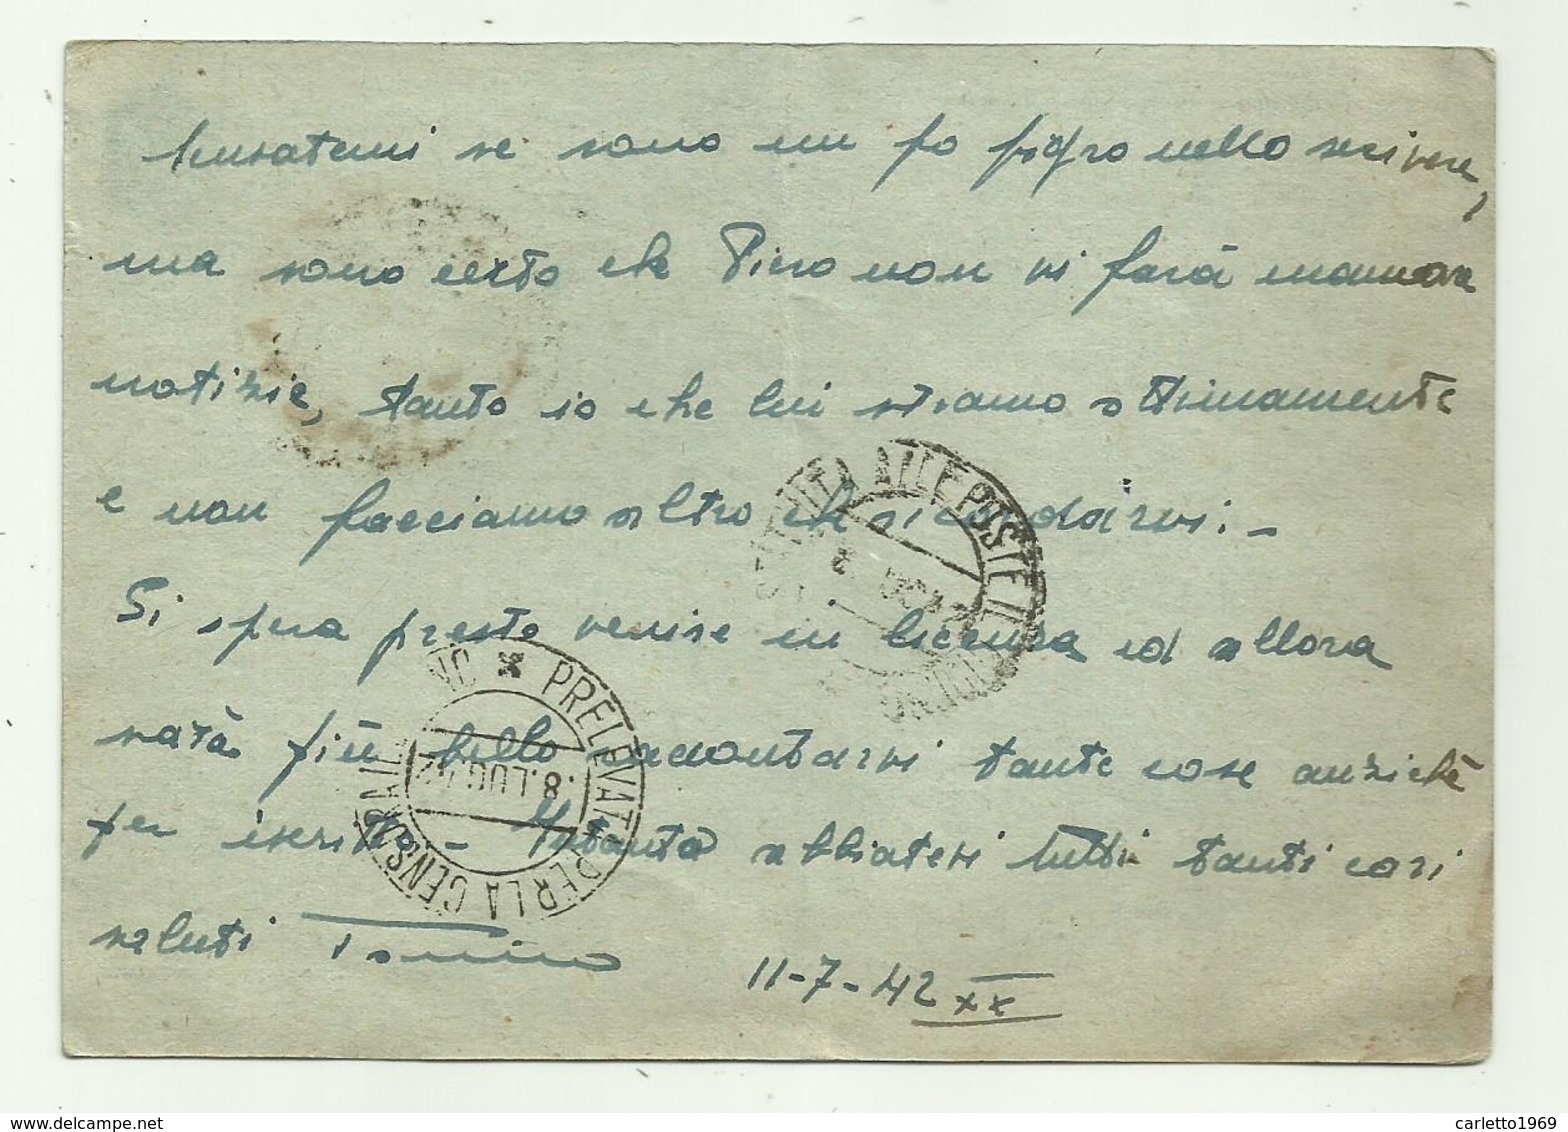 Scusatemi se sono un po pigro nello scrivere,
ma sono certo che Pino non vi farà mancare
notizie, tanto io che lui stiamo ottimamente
e non facciamo altro che ricordarvi. -
Si spera presto venire in licenza ed allora
sarà più bello raccontarvi tante cose anziché
per iscritto - Intanto abbiatevi tutti tanti cari
saluti Tonino
11-7-42 XX
PRELEVATA PER LA CENSURA
8. LUG. 42
ALLE POSTE IL
carletto1969